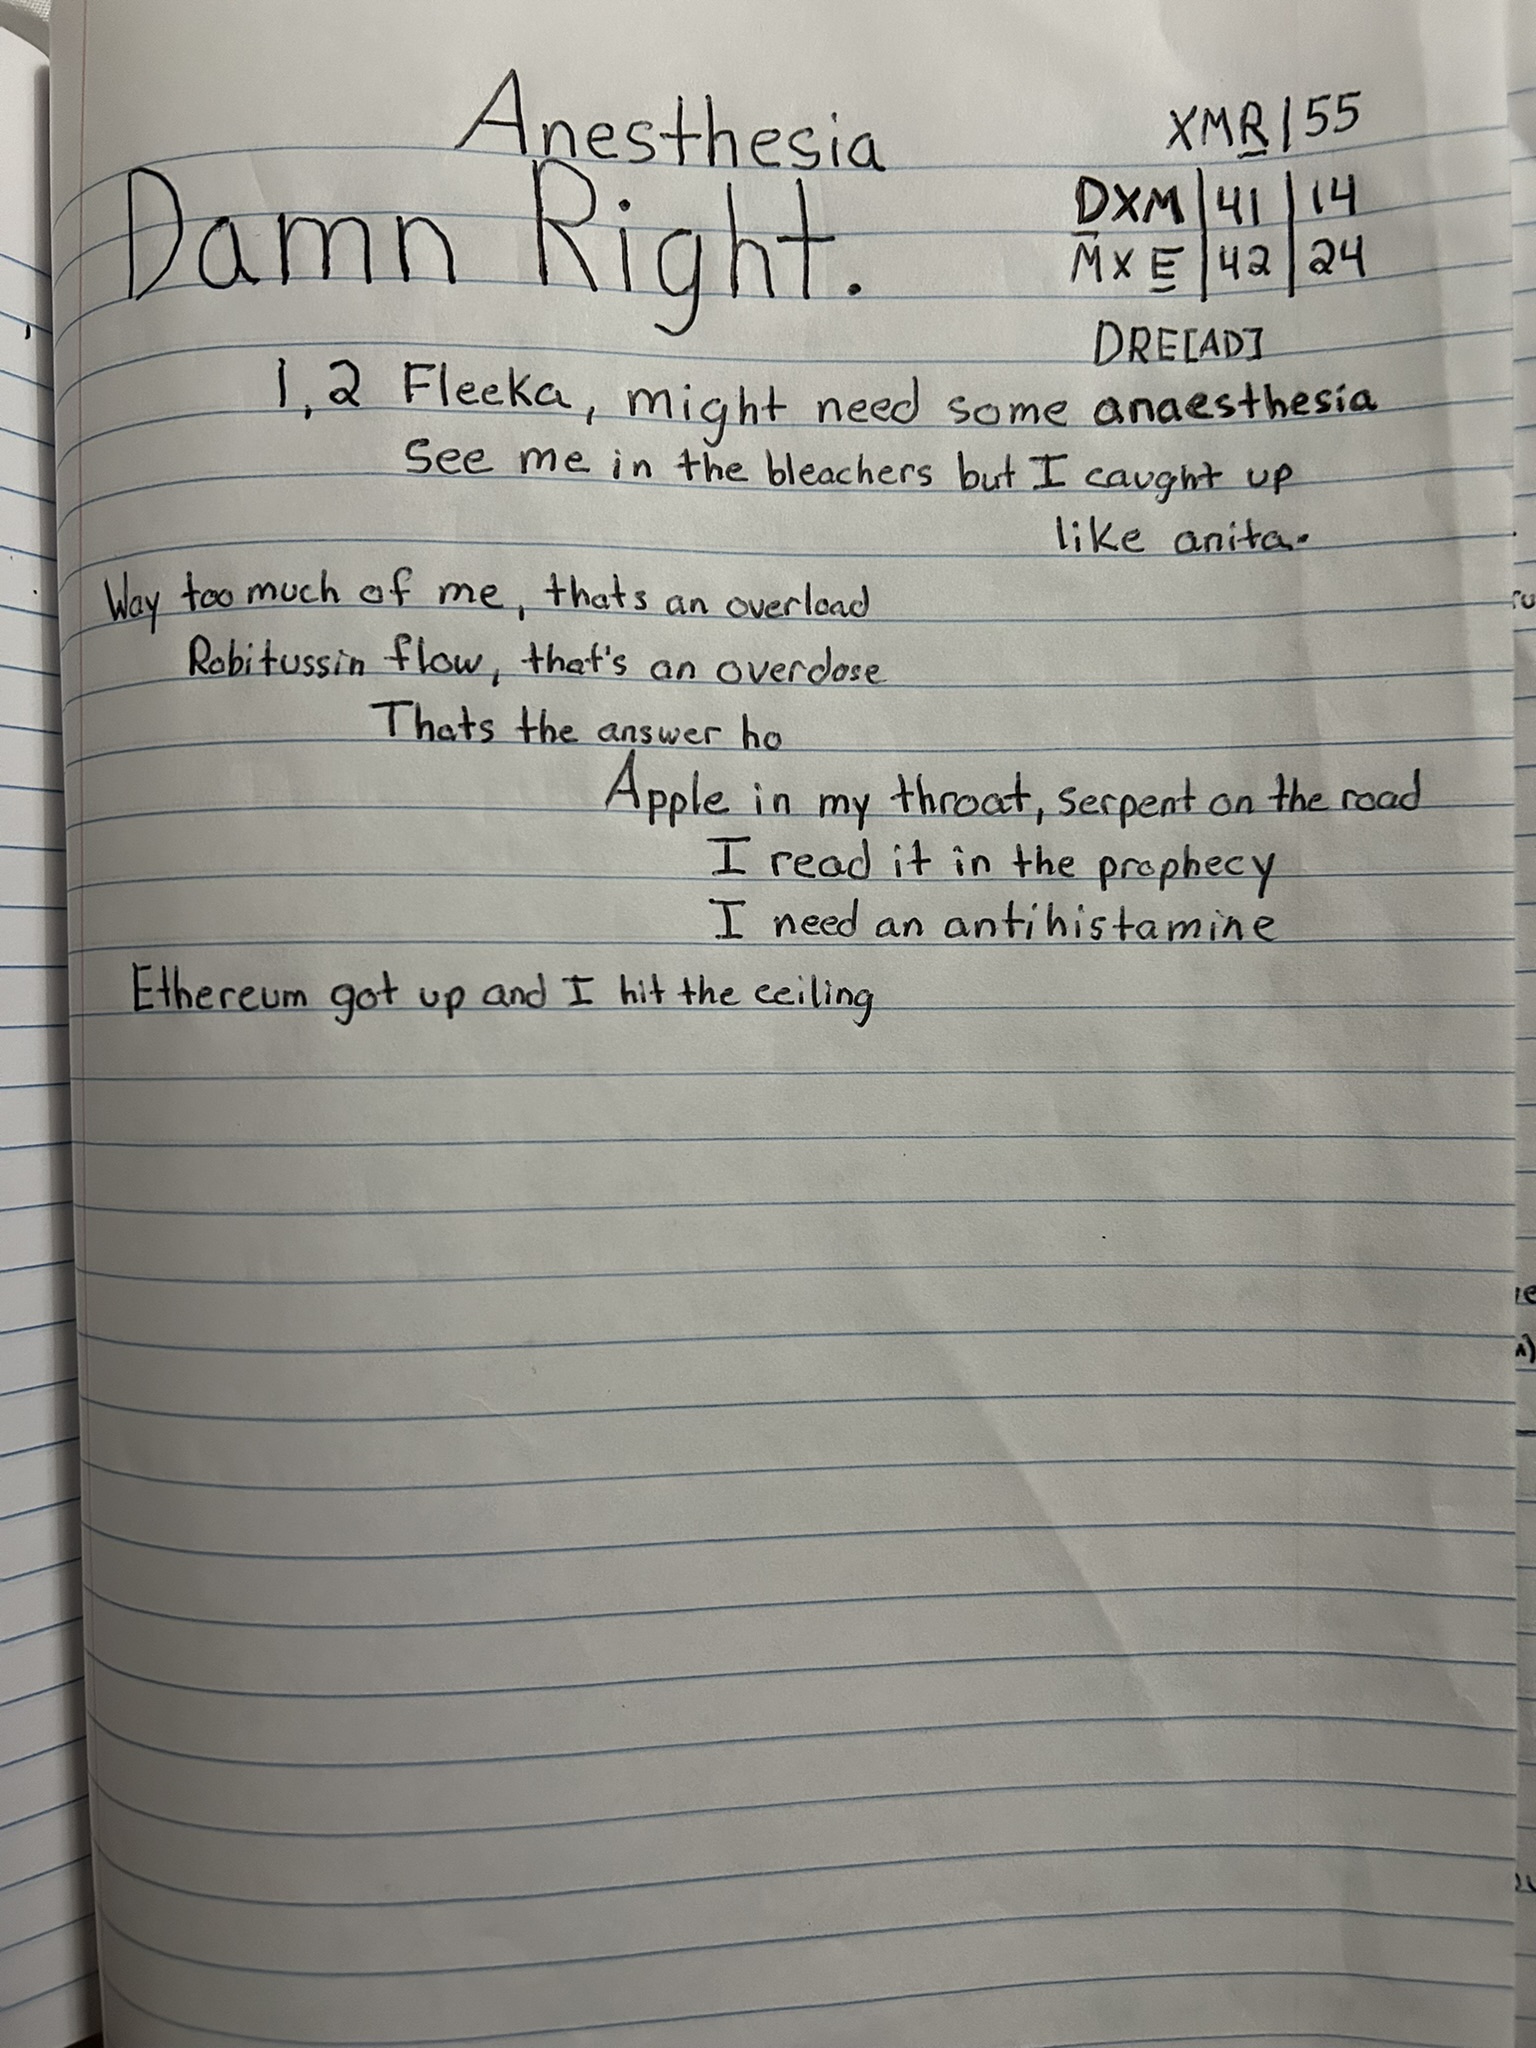 Anesthesia
XMR|55
Damn Right.
DXM|41|14
MXE|42|24
DRE[AD]
1,2 Fleeka, might need some anaesthesia
See me in the bleachers but I caught up
like anita.
Way too much of me, thats an overload
Robitussin flow, that's an overdose
Thats the answer ho
Apple in my throat, serpent on the road
I read it in the prophecy
I need an antihistamine
Ethereum got up and I hit the ceiling